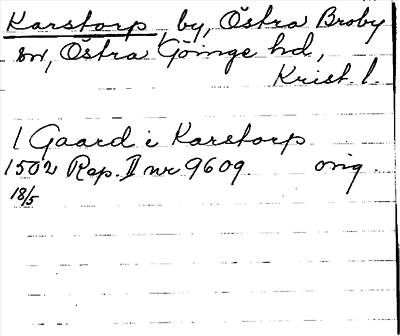 Karstorp, by, Östra Broby
sn, Östra Göinge hd,
Krist. l.
1 Gaard i Karstorp
1502 Rep. II nr 9609. orig.
18/5